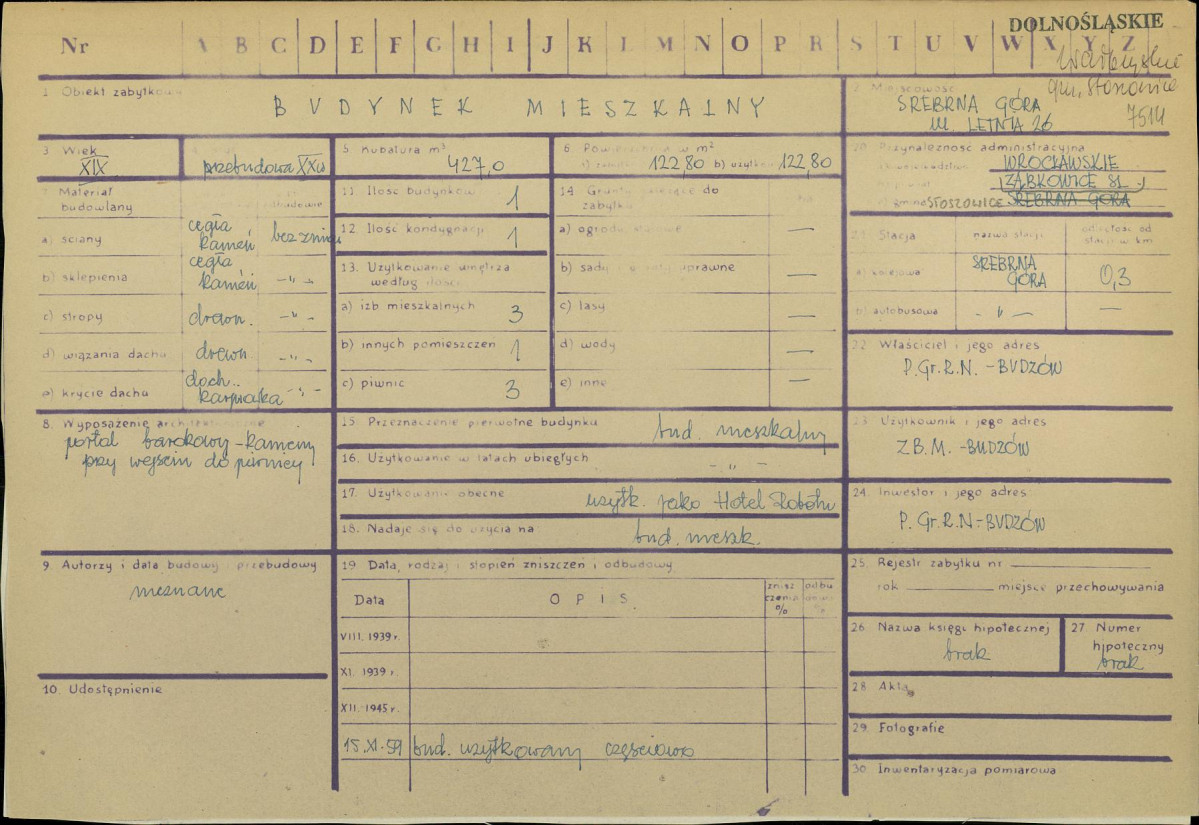 DOLNOŚLĄSKIE
Nr A B C D E F G H I J K L M N O P R S T U V W X Y Z
Wałbrzyskie
gm. Stoszowice
7514
1 Obiekt zabytkowy
BUDYNEK MIESZKALNY
2. Miejscowość
SREBRNA GÓRA
ul. LETNIA 26
3. Wiek
XIX
przebudowa XX w
5. Kubatura m³
427,0
6. Powierzchnia w m²
122,80 b) użytk. 122,80
20. Przynależność administracyjna
województwo WROCŁAWSKIE
powiat ZĄBKOWICE ŚL.
c) gmina STOSZOWICE SREBRNA GÓRA
7. Materiał
budowlany
a) ściany cegła kamień bez zmian
b) sklepienia cegła kamień -„-
c) stropy drewn. -„-
d) wiązania dachu drewn. -„-
e) krycie dachu dach.. karpiówka -„-
11. Ilość budynków 1
12. Ilość kondygnacji 1
13. Użytkowanie wnętrza
według ilości
a) izb mieszkalnych 3
b) innych pomieszczeń 1
c) piwnic 3
14. Grunty należące do
zabytku ha
a) ogrody ozdobne —
b) sady i ogrody uprawne —
c) lasy —
d) wody —
e) inne —
21. Stacja nazwa stacji odległość od
stacji w km
a) kolejowa SREBRNA GÓRA 0,3
b) autobusowa -„- —
22. Właściciel i jego adres
P.Gr.R.N. - BUDZÓW
8. Wyposażenie architektoniczne
portal barokowy-kamienny
przy wejściu do piwnicy
15. Przeznaczenie pierwotne budynku bud. mieszkalny
16. Użytkowanie w latach ubiegłych -„-
17. Użytkowanie obecne użytk. jako Hotel Robotn
18. Nadaje się do użycia na bud. mieszk.
23. Użytkownik i jego adres
Z.B.M. - BUDZÓW
24. Inwestor i jego adres
P. Gr. R.N - BUDZÓW
9. Autorzy i data budowy i przebudowy
nieznane
10. Udostępnienie
19. Data, rodzaj i stopień zniszczeń i odbudowy
Data OPIS znisz
czenia
% odbu
dowa
%
VIII. 1939 r.
XI. 1939 r.
XII. 1945 r.
15.XI.59 bud. użytkowany częściowo
25. Rejestr zabytku nr
rok miejsce przechowywania
26. Nazwa księgi hipotecznej
brak
27. Numer
hipoteczny
brak
28. Akta
29. Fotografie
30. Inwentaryzacja pomiarowa